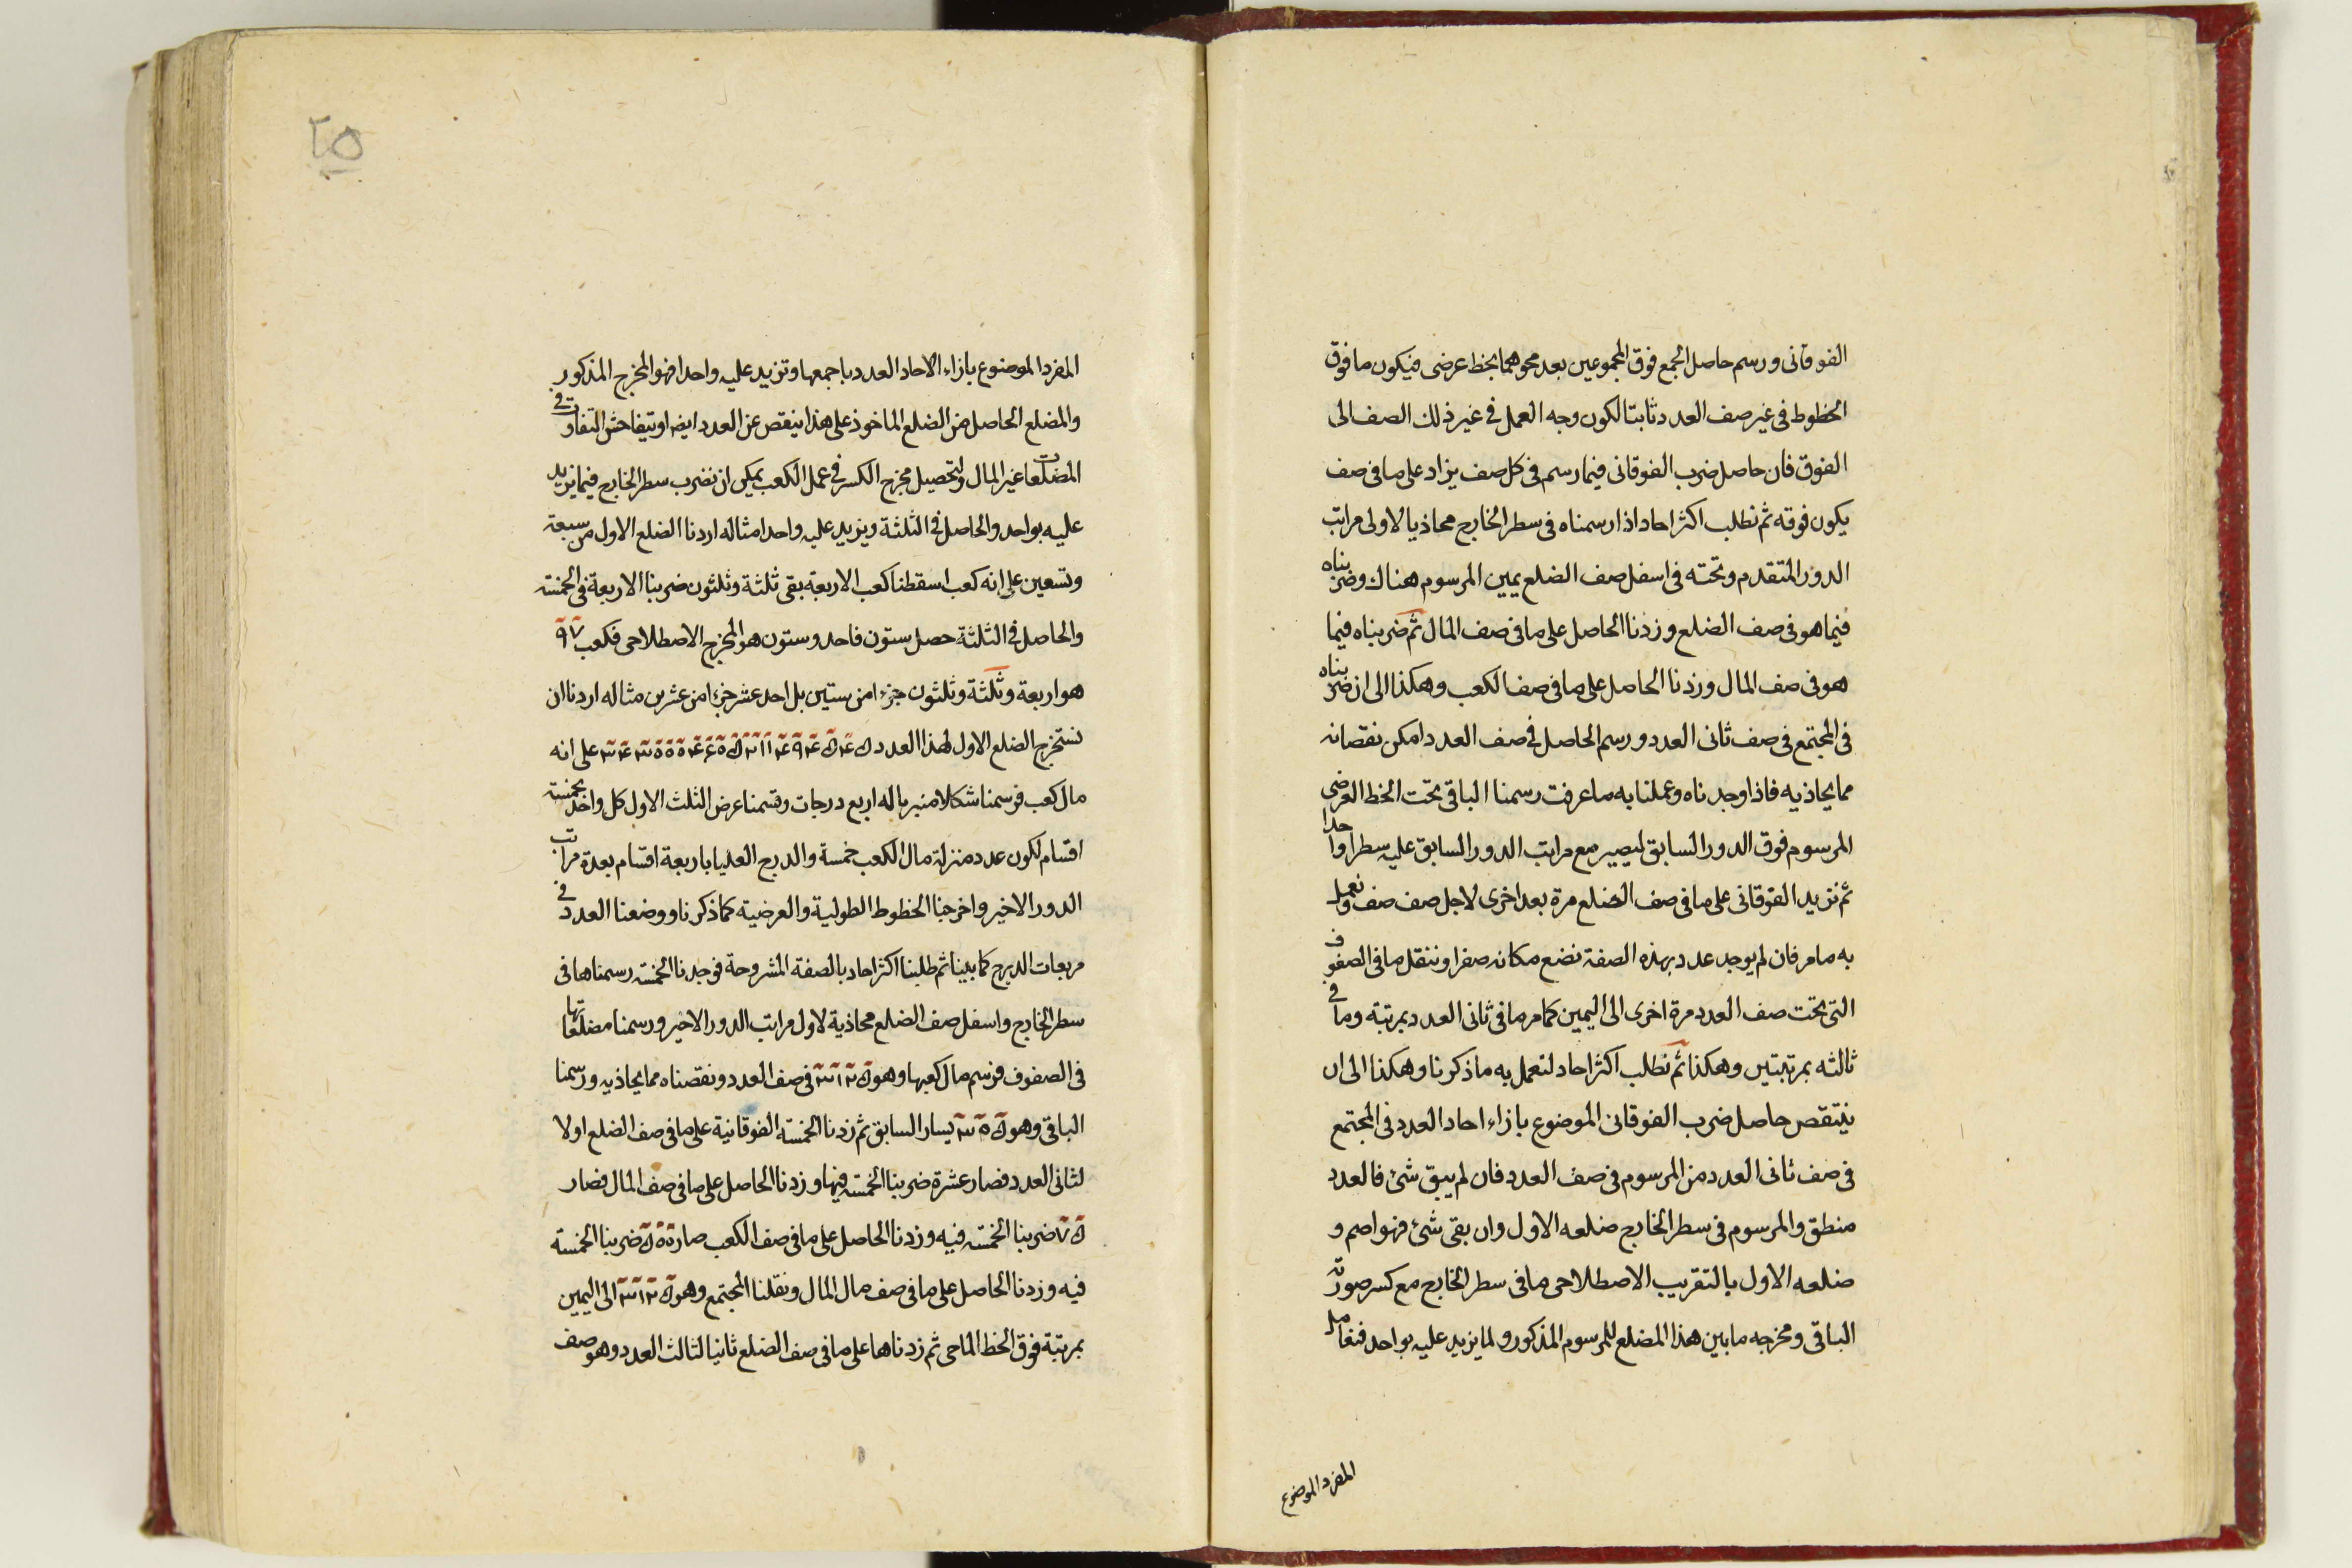 الفوقانى ورسم حاصل الجمع فوق المجموعين بعد محوهما بخط عرضى فيكون ما فوق
الخطوط فى غير صف العدد ثابتا لكون وجه العمل فى غير ذلك الصف الى
الفوق فان حاصل ضرب الفوقانى فيما رسم فى كل صف يزاد على ما فى صف
يكون فوقه ثم نطلب اكثر احاد اذا رسمناه فى سطر الخارج محاذيا لاولى مراتب
الدور المتقدم وتحته فى اسفل صف الضلع يمين المرسوم هناك وضربناه
فيما هو فى صف الضلع وزدنا الحاصل على ما فى صف المال ثم ضربناه فيما
هو فى صف المال وزدنا الحاصل على ما فى صف الكعب وهكذا الى ان ضربناه
فى المجتمع فى صف ثانى العدد ورسم الحاصل فى صف العدد امكن نقصانه
مما يحاذيه فاذا وجدناه وعملنا به ما عرفت رسمنا الباقى تحت الخط العرضى
المرسوم فوق الدور السابق ليصير مع مراتب الدور السابق عليه سطرا واحدا
ثم نزيد الفوقانى على ما فى صف الضلع مرة بعد اخرى لاجل صف صف ونعمل
به ما مر فان لم يوجد عدد بهذه الصفة نضع مكانه صفرا وننقل ما فى الصفوف
التى تحت صف العدد مرة اخرى الى اليمين كما مر ما فى ثانى العدد بمرتبة وما فى
ثالثه بمرتبتين وهكذا ثم نطلب اكثر احاد لنعمل به ما ذكرنا وهكذا الى ان
ينتقص حاصل ضرب الفوقانى الموضوع بازاء احاد العدد فى المجتمع
فى صف ثانى العدد من المرسوم فى صف العدد فان لم يبق شئ فالعدد
منطق والمرسوم فى سطر الخارج ضلعه الاول وان بقى شئ فهو اصم و
ضلعه الاول بالتقريب الاصطلاحى ما فى سطر الخارج مع كسر صورته
الباقى ومخرجه ما بين هذا المضلع للمرسوم المذكور ولما يزيد عليه بواحد فنعامل
المفرد الموضوع
٢٥
المفرد الموضوع بازاء الاحاد العدد باجمعها وتزيد عليه واحدا فهو المخرج المذكور
والمضلع الحاصل من الضلع الماخوذ على هذا ينقص عن العدد ايضه او يتفاحش التفاوت فى
المضلعات غير المال ولتحصيل مخرج الكسر فى عمل الكعب يمكن ان نضرب سطر الخارج فيما يزيد
عليه بواحد والحاصل فى الثلثة ويزيد عليه واحدا مثاله اردنا الضلع الاول من سبعة
وتسعين على انه كعب اسقطنا كعب الاربعة بقى ثلثة وثلثون ضربنا الاربعة فى الخمسة
والحاصل فى الثلثة حصل ستون فاحد وستون هو المخرج الاصطلاحى فكعب ٩٧
هو اربعة وثلثة وثلثون جزءا من ستين بل احد عشر جزءا من عشرين مثاله اردنا ان
نستخرج الضلع الاول لهذا العدد على انه
مال كعب فرسمنا شكلا منبريا له اربع درجات وقسمنا عرض الثلث الاول كل واحد بخمسة
اقسام لكون عدد منزلة مال الكعب خمسة والدرج العليا باربعة اقسام بعدة مراتب
الدور الاخير واخرجنا الخطوط الطولية والعرضية كما ذكرنا ووضعنا العدد فى
مربعات الدرج كما بينا ثم طلبنا اكثر احاد بالصفة المشروحة فوجدنا الخمسة رسمناها فى
سطر الخارج واسفل صف الضلع محاذية لاول مراتب الدور الاخير ورسمنا مضلعاتها
فى الصفوف فرسم مال كعبها وهو ٣١٢٥ فى صف العدد ونقصناه مما يحاذيه ورسمنا
الباقى وهو يسار السابق ثم زدنا الخمسة الفوقانية على ما فى صف الضلع اولا
لثانى العدد فصار عشرة ضربنا الخمسة فيها وزدنا الحاصل على ما فى صف المال فصار
٧٥ ضربنا الخمسة فيه وزدنا الحاصل على ما فى صف الكعب صار ٥٠٠ ضربنا الخمسة
فيه وزدنا الحاصل على ما فى صف مال المال ونقلنا المجتمع وهو ٣١٢٥ الى اليمين
بمرتبة فوق الخط الماحى ثم زدناها على ما فى صف الضلع ثانيا لثالث العدد وهو صف